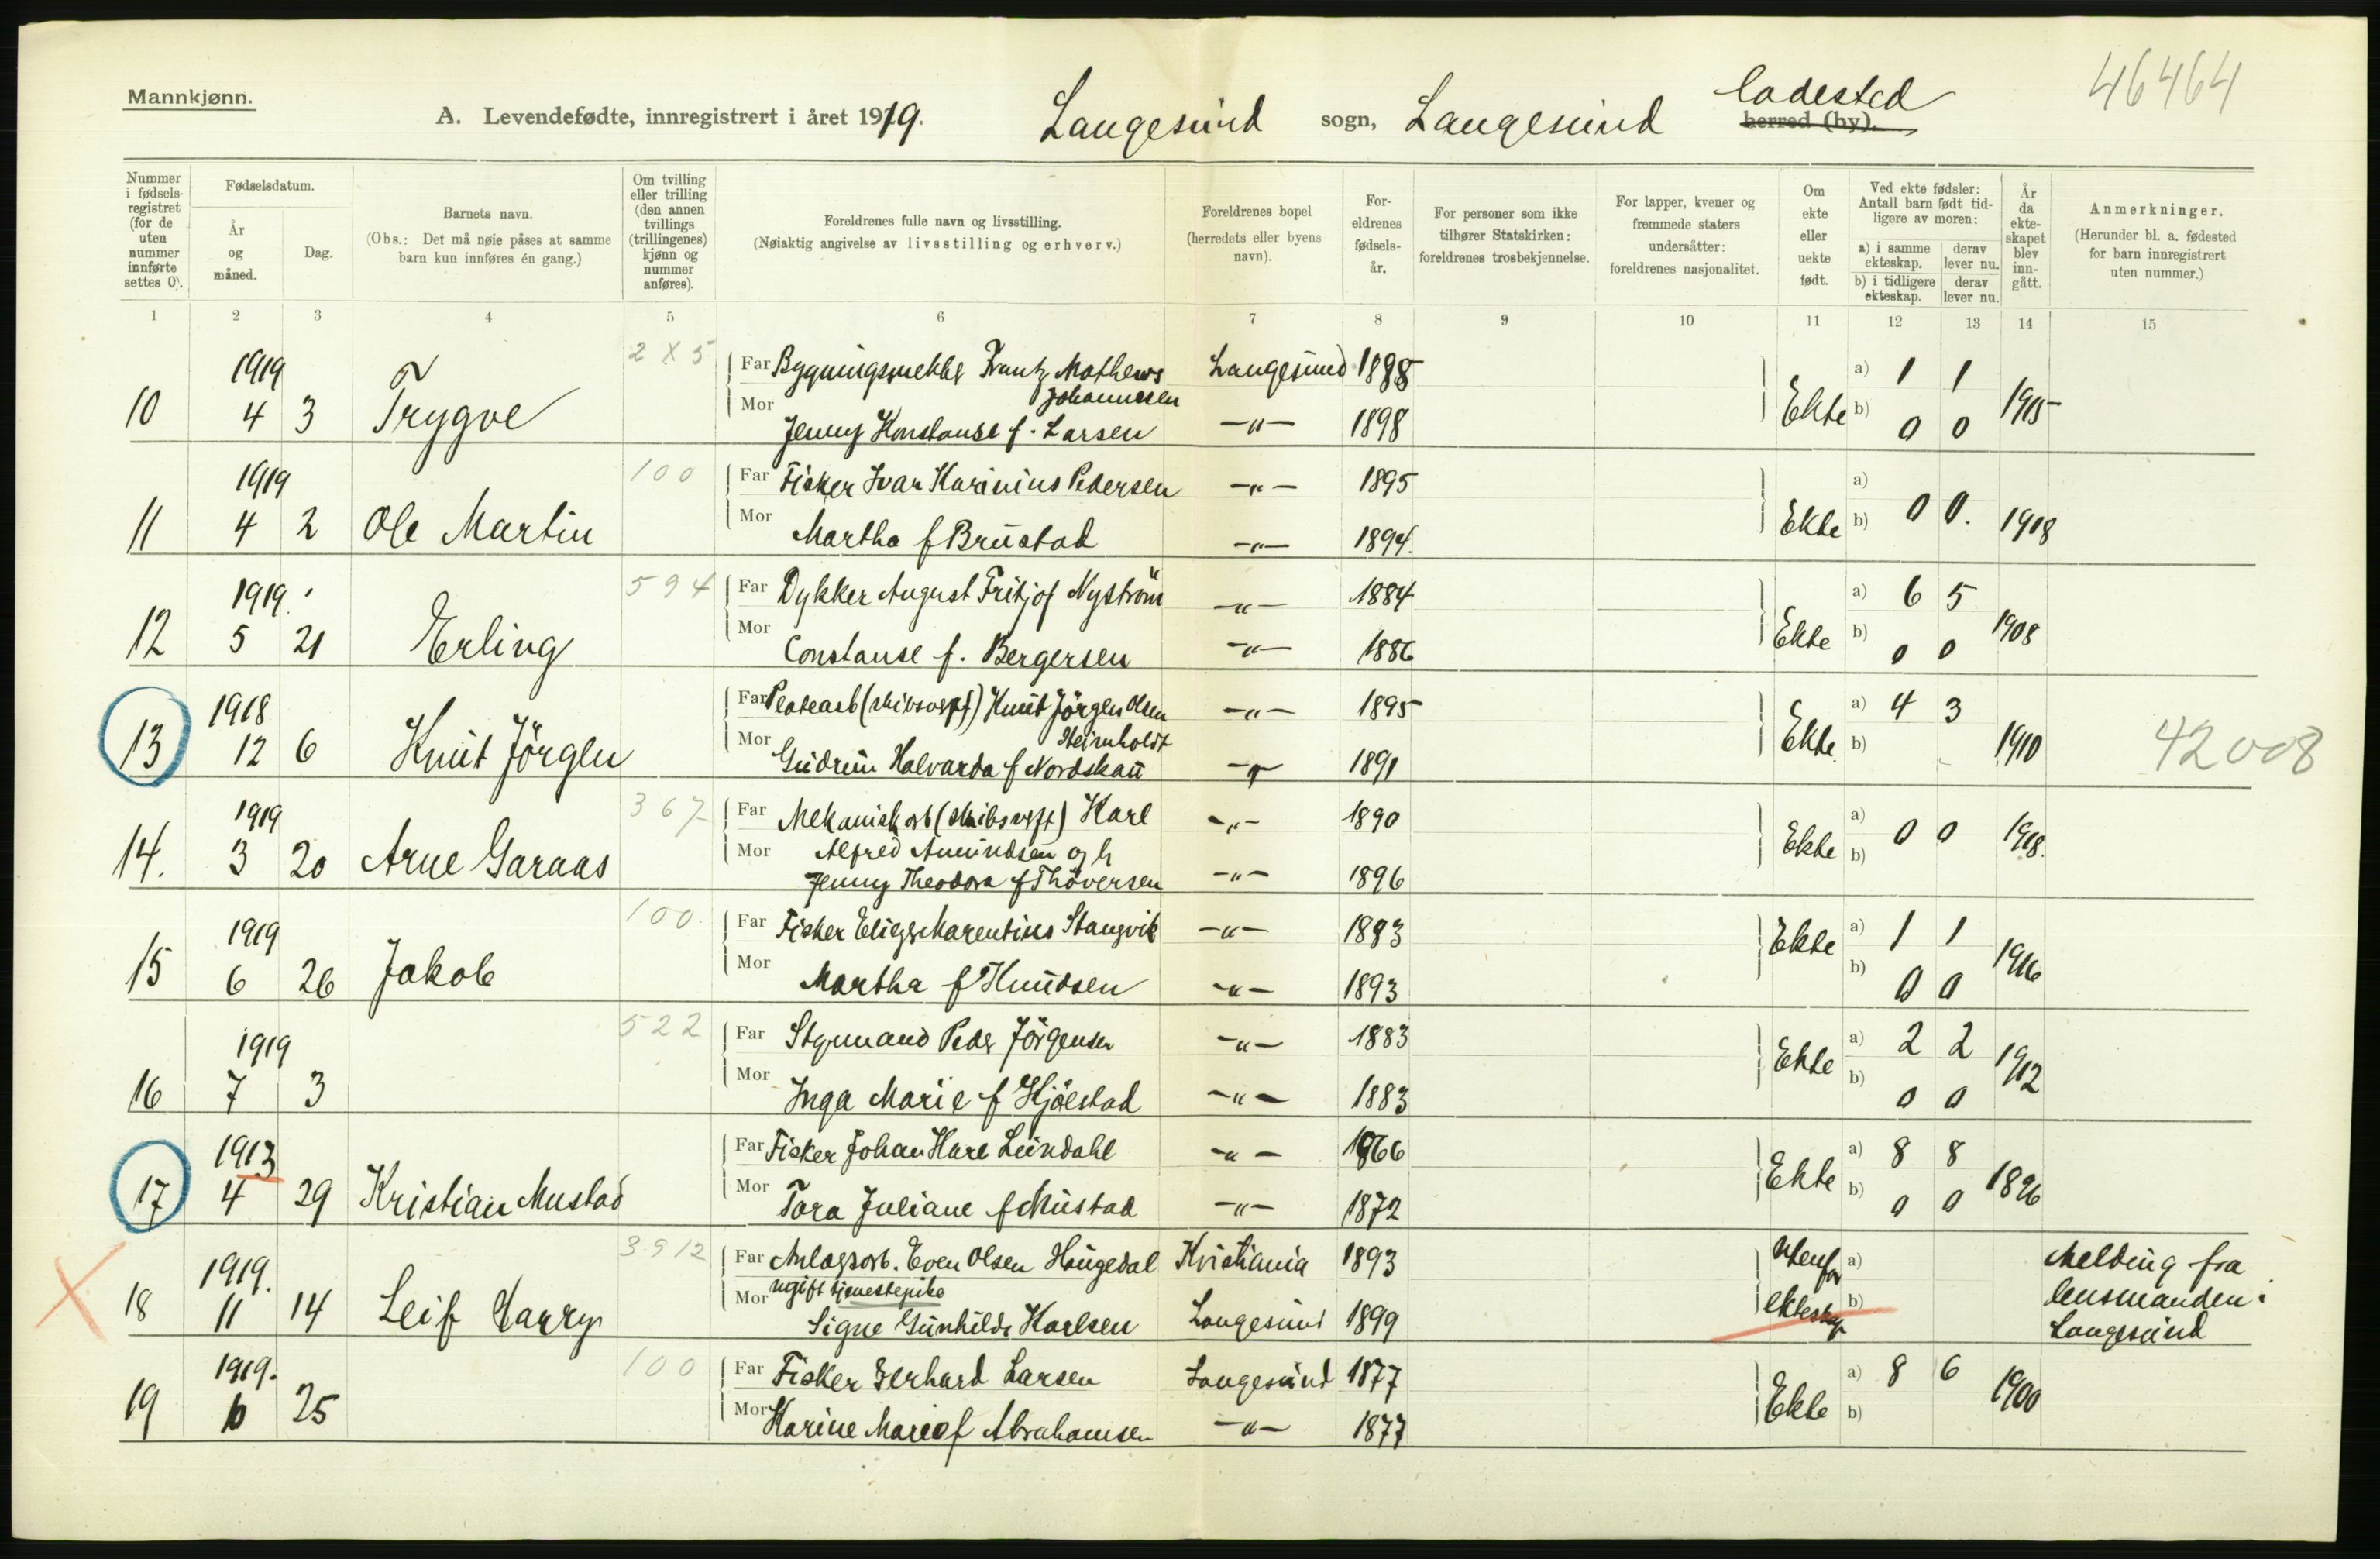 Mannkjønn.
A. Levendefødte, innregistrert i året 1919. Langesund sogn, Langesund ladested herred (by).
46464
Nummer i fødselsregistret (for de uten nummer innførte settes 0).
Fødselsdatum.
År og måned.
Dag.
Barnets navn.
(Obs.: Det må nøie påses at samme barn kun innføres én gang.)
Om tvilling eller trilling (den annen tvillings (trillingenes) kjønn og nummer anføres).
Foreldrenes fulle navn og livsstilling.
(Nøiaktig angivelse av livsstilling og erhverv.)
Foreldrenes bopel (herredets eller byens navn).
Foreldrenes fødselsår.
For personer som ikke tilhører Statskirken: foreldrenes trosbekjennelse.
For lapper, kvener og fremmede staters undersåtter: foreldrenes nasjonalitet.
Om ekte eller uekte født.
Ved ekte fødsler: Antall barn født tidligere av moren:
a) i samme ekteskap. derav lever nu.
b) i tidligere ekteskap. derav lever nu.
År da ekteskapet blev inngått.
Anmerkninger.
(Herunder bl. a. fødested for barn innregistrert uten nummer.)
1 2 3 4 5 6 7 8 9 10 11 12 13 14 15
10 1919 4 3 Trygve 2 X 5 Far Frantz Mathews Johannesen Langesund 1898 Ekte a) 1 1 1915
Mor Jenny Konstanse f. Larsen —"— 1898 b) 0 0
11 1919 4 2 Ole Martin 100 Far Fisker Ivar Karinius Pedersen —"— 1895 Ekte a)
Mor Martha f Brustad —"— 1894. b) 0 0. 1918
12 1919. 5 21 Erling 594 Far Dykker August Fritjof Nyström —"— 1884 Ekte a) 6 5 1908
Mor Constanse f. Bergersen —"— 1886 b) 0 0
13 1918 12 6 Knut Jörgen Far Platearb (skibsverft) Knut Jörgen Olsen —"— 1895 Ekte a) 4 3 1910 42008
Mor Steinholdt
Gudrun Halvarda f Nordskau —"— 1891 b)
14. 1919 3 20 Arne Garaas 367 Far Mekanisk arb (skibsverft) Karl —"— 1890 Ekte a) 0 0 1918.
Mor Alfred Amundsen og h
Jenny Theodora f Thöversen —"— 1896 b)
15 1919 6 26 Jakob 100 Far Fisker Marentius Stangvik —"— 1893 Ekte a) 1 1 1916
Mor Martha f Knudsen —"— 1893 b) 0 0
16 1919 7 3 522 Far Styrmand Peder Jörgensen —"— 1883 Ekte a) 2 2 1912
Mor Inga Marie f Kjöestad —"— 1883 b) 0 0
17 1913 4 29 Kristian Mustad Far Fisker Johan Hare Lundahl —"— 1866 Ekte a) 8 8 1896
Mor Tora Juliane f Mustad —"— 1872 b) 0 0
18 1919. 11 14 Leif Harry 3912 Far Anlægsarb. Even Olsen Haugedal Kristiania 1893 Utenfor ekteskap a) Melding fra
Mor ugift tjenestepike
Signe Gunhilda Karlsen Langesund 1899 b) lensmanden i
Langesund
19 1919. 6 25 100 Far Fisker Gerhard Larsen Langesund 1877 Ekte a) 8 6 1900
Mor Karine Marie f Abrahamsen —"— 1877 b)